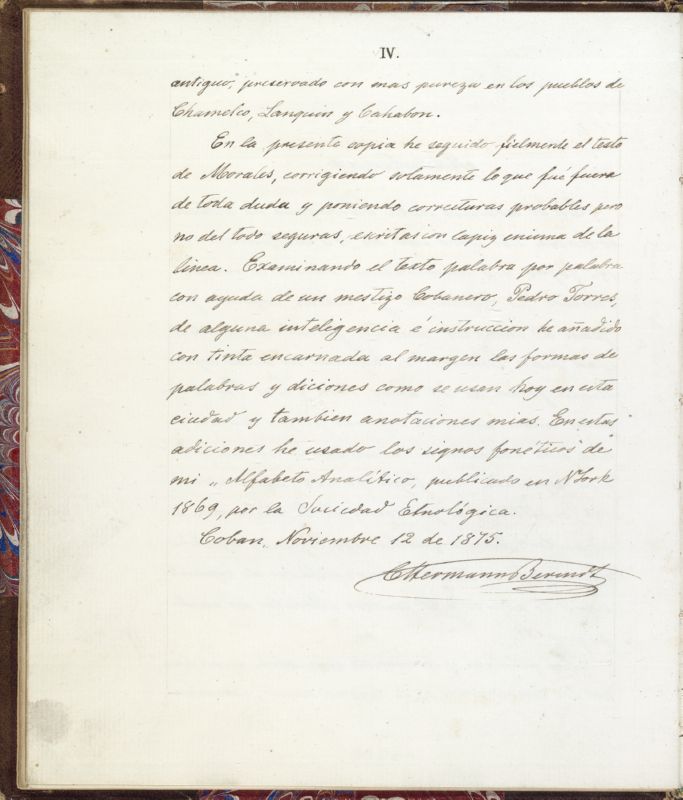 IV.
antiguo, preservado con mas pureza en los pueblos de
Chamelco, Lanquin y Cahabon.
En la presente copia he seguido fielmente el testo
de Morales, corrigiendo solamente lo que fué fuera
de toda duda y poniendo correcturas probables pero
no del todo seguras, escritas con lapiz encima de la
linea. Examinando el texto palabra por palabra
con ayuda de un mestizo Cobanero, Pedro Torres,
de alguna inteligencia é instruccion he añadido
con tinta encarnada al margen las formas de
palabras y diciones como se usan hoy en esta
ciudad y tambien anotaciones mias. En estas
adiciones he usado los signos fonéticos de
mi „Alfabeto Analítico, publicado en N York
1869, por la Sociedad Etnológica.
Coban, Noviembre 12 de 1875.
CHermann Berendt